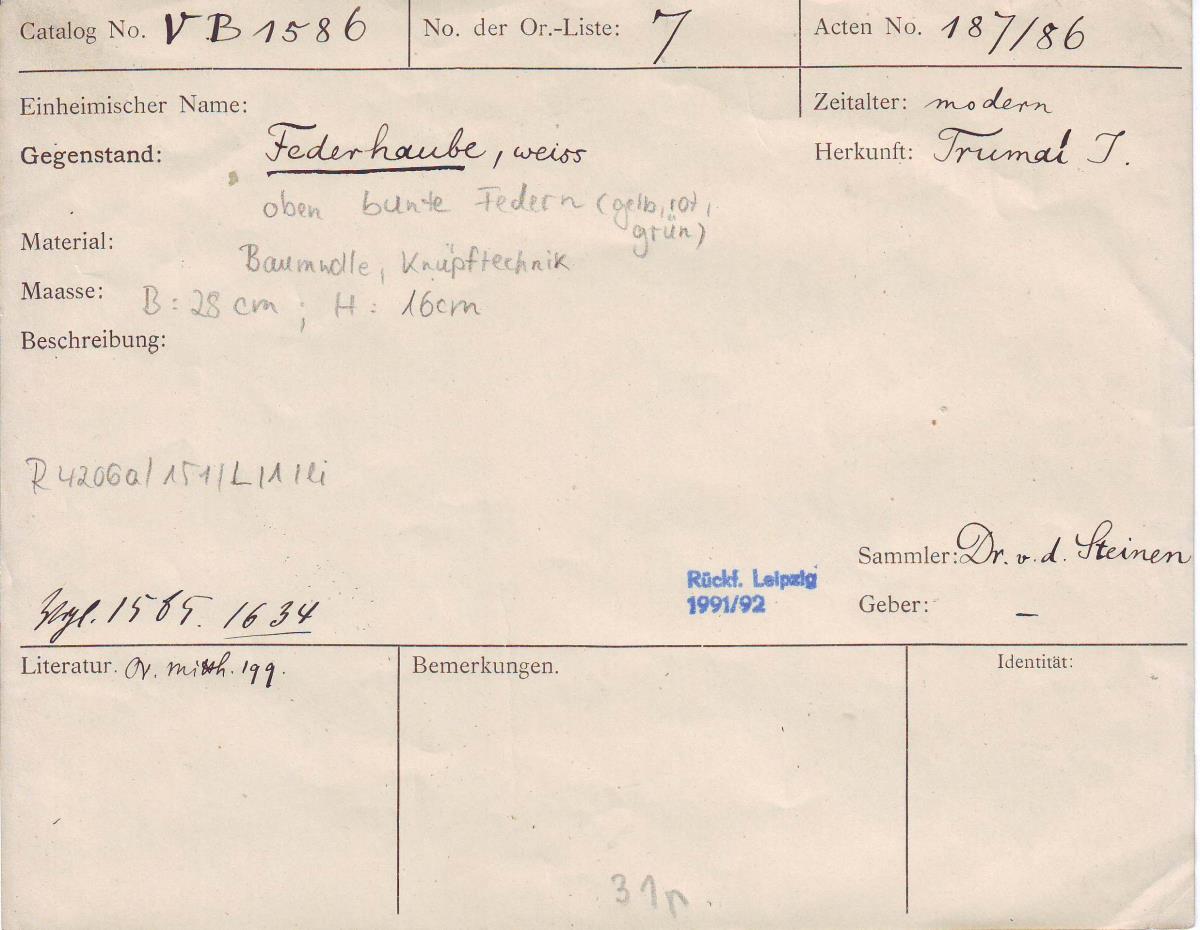 Catalog No. VB 1586 No. der Or.-Liste: 7 Acten No. 187/86
Einheimischer Name: Zeitalter: modern
Gegenstand: Federhaube, weiss Herkunft: Trumaí I.
oben bunte Federn (gelb, rot,
grün)
Material: Baumwolle, Knüpftechnik
Maasse: B: 28 cm; H: 16cm
Beschreibung:
R 4206a/151/L/1
Sammler: Dr. v. d. Steinen
Rückf. Leipzig
1991/92
Geber: —
Vgl. 1585. 1634
Literatur. mitth. 199. Bemerkungen. Identität:
31